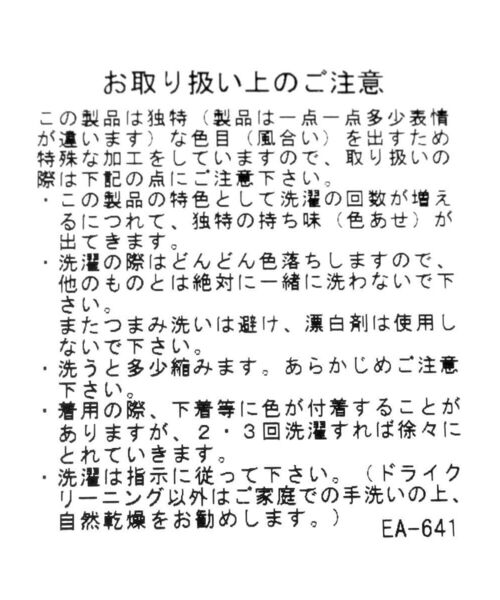 お取り扱い上のご注意
この製品は独特（製品は一点一点多少表情
が違います）な色目（風合い）を出すため
特殊な加工をしていますので、取り扱いの
際は下記の点にご注意下さい。
・この製品の特色として洗濯の回数が増え
るにつれて、独特の持ち味（色あせ）が
出てきます。
・洗濯の際はどんどん色落ちしますので、
他のものとは絶対に一緒に洗わないで下
さい。
またつまみ洗いは避け、漂白剤は使用し
ないで下さい。
・洗うと多少縮みます。あらかじめご注意
下さい。
・着用の際、下着等に色が付着することが
ありますが、２・３回洗濯すれば徐々に
とれていきます。
・洗濯は指示に従って下さい。（ドライク
リーニング以外はご家庭での手洗いの上、
自然乾燥をお勧めします。）
EA-641